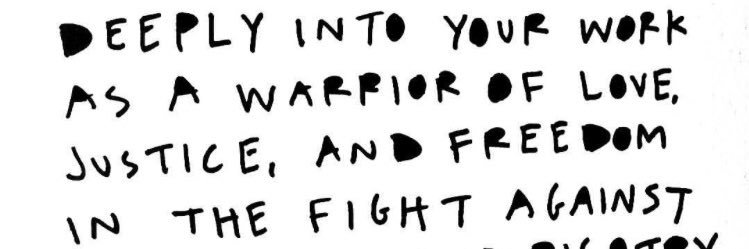 DEEPLY INTO YOUR WORK
AS A WARRIOR OF LOVE,
JUSTICE, AND FREEDOM
IN THE FIGHT AGAINST